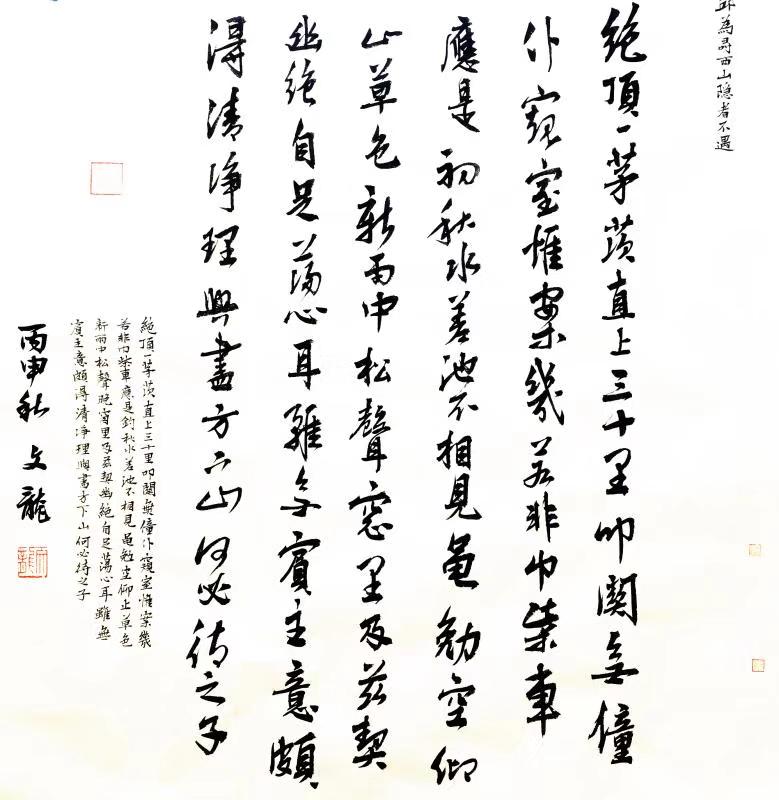 邱為尋西山隱者不遇
絕頂一茅茨直上三十里叩關無僮
仆窺室惟案幾若非巾柴車
應是初秋水差池不相見黽勉空仰
止草色新雨中松聲窓里及茲契
幽絕自足蕩心耳雖無賓主意頗
得清淨理興盡方下山何必待之子
絕頂一茅茨直上三十里叩關無僮仆窺室惟案幾
若非巾柴車應是釣秋水差池不相見黽勉空仰止草色
新雨中松聲晚窗里及茲契幽絕自足蕩心耳雖無
賓主意頗得清淨理興盡方下山何必待之子
丙申秋 文龍